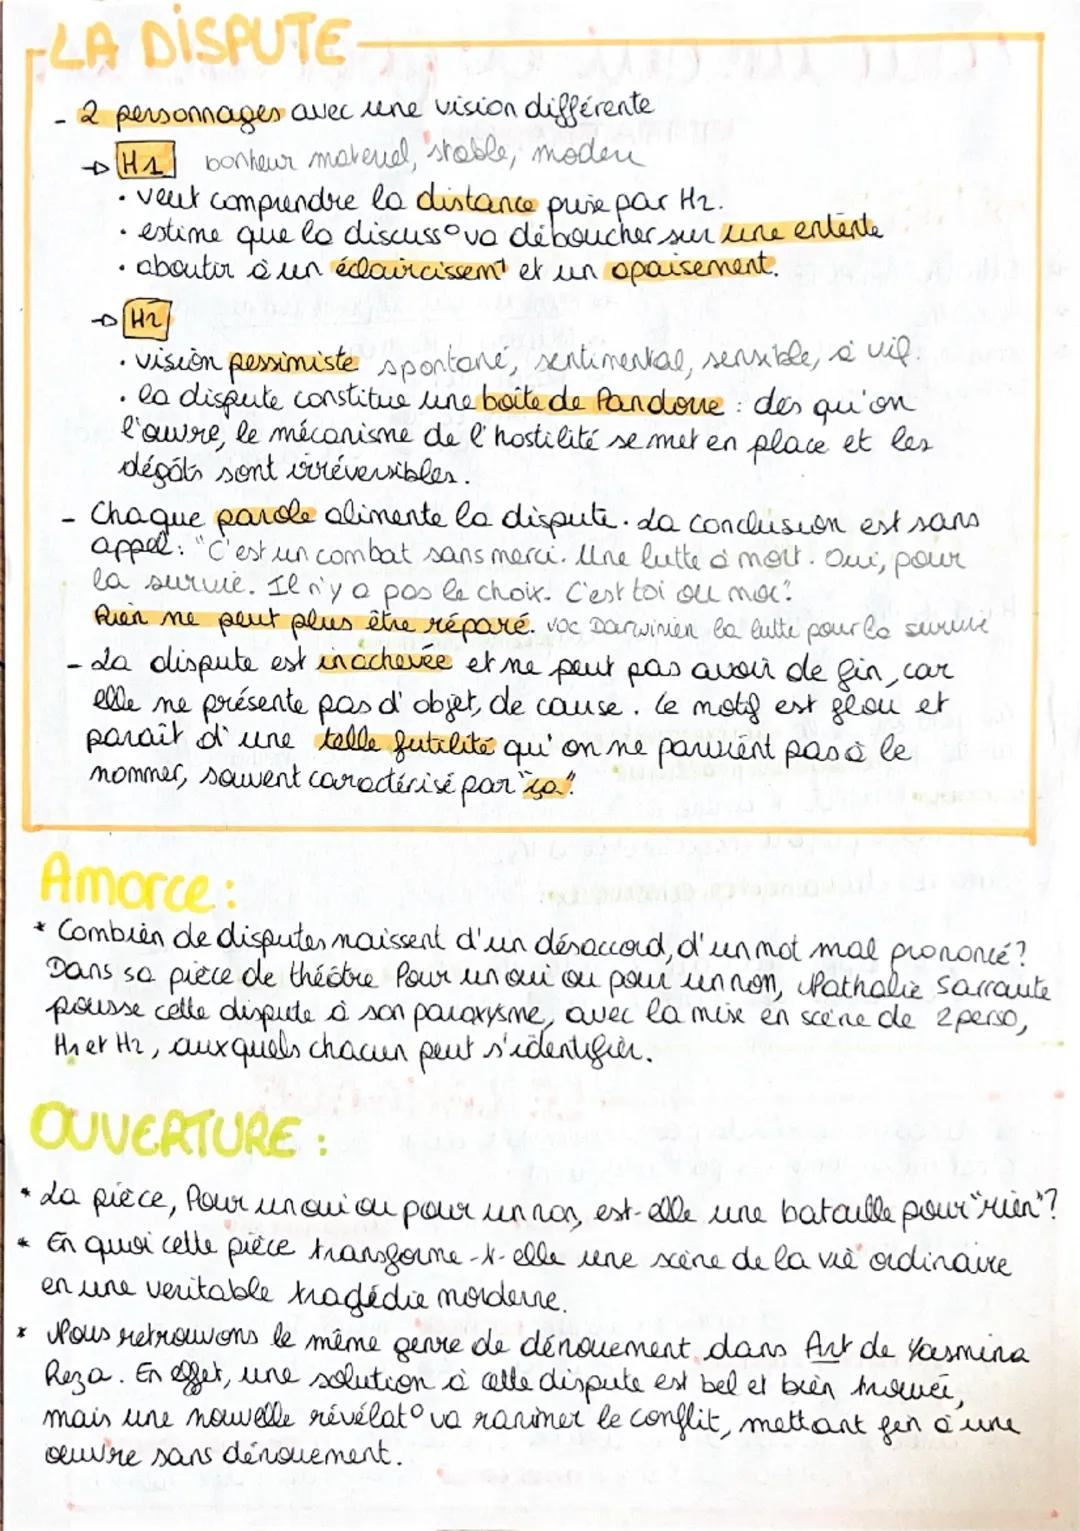 LA DISPUTE
- 2 personnages avec une vision différente
→ H1 bonheur materiel, stable, modéré
· veut comprendre la distance prise par H2.
· estime que la discuss° va déboucher sur une entente
· aboutir à un éclaircissemt et un apaisement.
→ H2
· vision pessimiste spontané, sentimental, sensible, à vif.
· la dispute constitue une boîte de Pandore : dès qu'on
l'ouvre, le mécanisme de l'hostilité se met en place et les
dégâts sont irréversibles.
- Chaque parole alimente la dispute. La conclusion est sans
appel : "C'est un combat sans merci. Une lutte à mort. Oui, pour
la survie. Il n'y a pas le choix. C'est toi ou moi."
Rien ne peut plus être réparé. voc Darwinien la lutte pour la survie
- La dispute est inachevée et ne peut pas avoir de fin, car
elle ne présente pas d'objet, de cause. Le motif est flou et
paraît d'une telle futilité qu'on ne parvient pas à le
nommer, souvent caractérisé par "ça".
Amorce :
* Combien de disputes naissent d'un désaccord, d'un mot mal prononcé ?
Dans sa pièce de théâtre Pour un oui ou pour un non, Nathalie Sarraute
pousse cette dispute à son paroxysme, avec la mise en scène de 2 perso,
H1 et H2, auxquels chacun peut s'identifier.
OUVERTURE :
* La pièce, Pour un oui ou pour un non, est-elle une bataille pour "rien" ?
* En quoi cette pièce transforme-t-elle une scène de la vie ordinaire
en une veritable tragédie moderne.
* Nous retrouvons le même genre de dénouement dans Art de Yasmina
Reza. En effet, une solution à cette dispute est bel et bien trouvée,
mais une nouvelle révélat° va ranimer le conflit, mettant fin à une
œuvre sans dénouement.